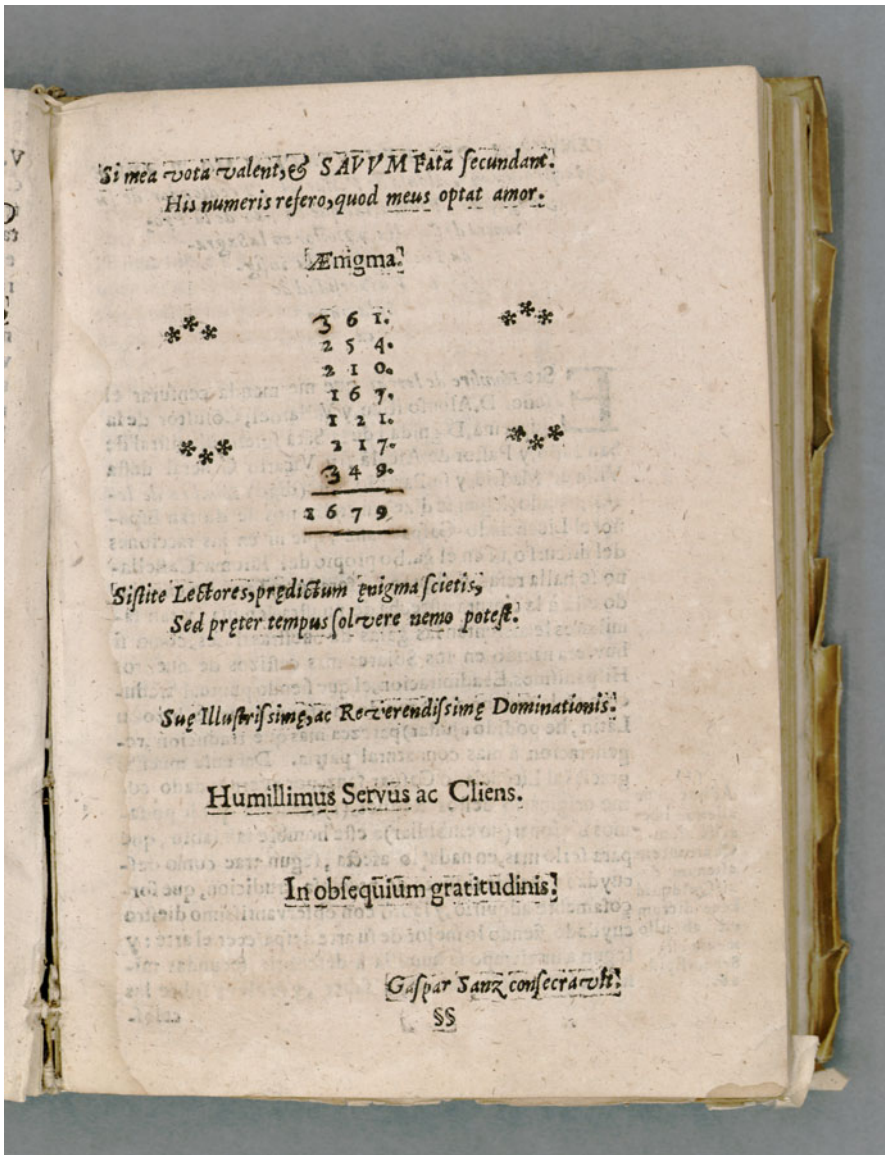 Si mea vota valent, & SAVVM Fata ſecundant.
His numeris refero, quod meus optat amor.
Ænigma.
3 6 1.
2 5 4.
2 1 0.
1 6 7.
1 2 1.
2 1 7.
3 4 9.
1 6 7 9
Siſtite Lectores, prędictum ęnigma ſcietis,
Sed pręter tempus ſolvere nemo poteſt.
Suę Illuſtriſsimę, ac Reverendiſsimę Dominationis.
Humillimus Servus ac Cliens.
In obſequium gratitudinis.
Gaſpar Sanz conſecravit.
§§